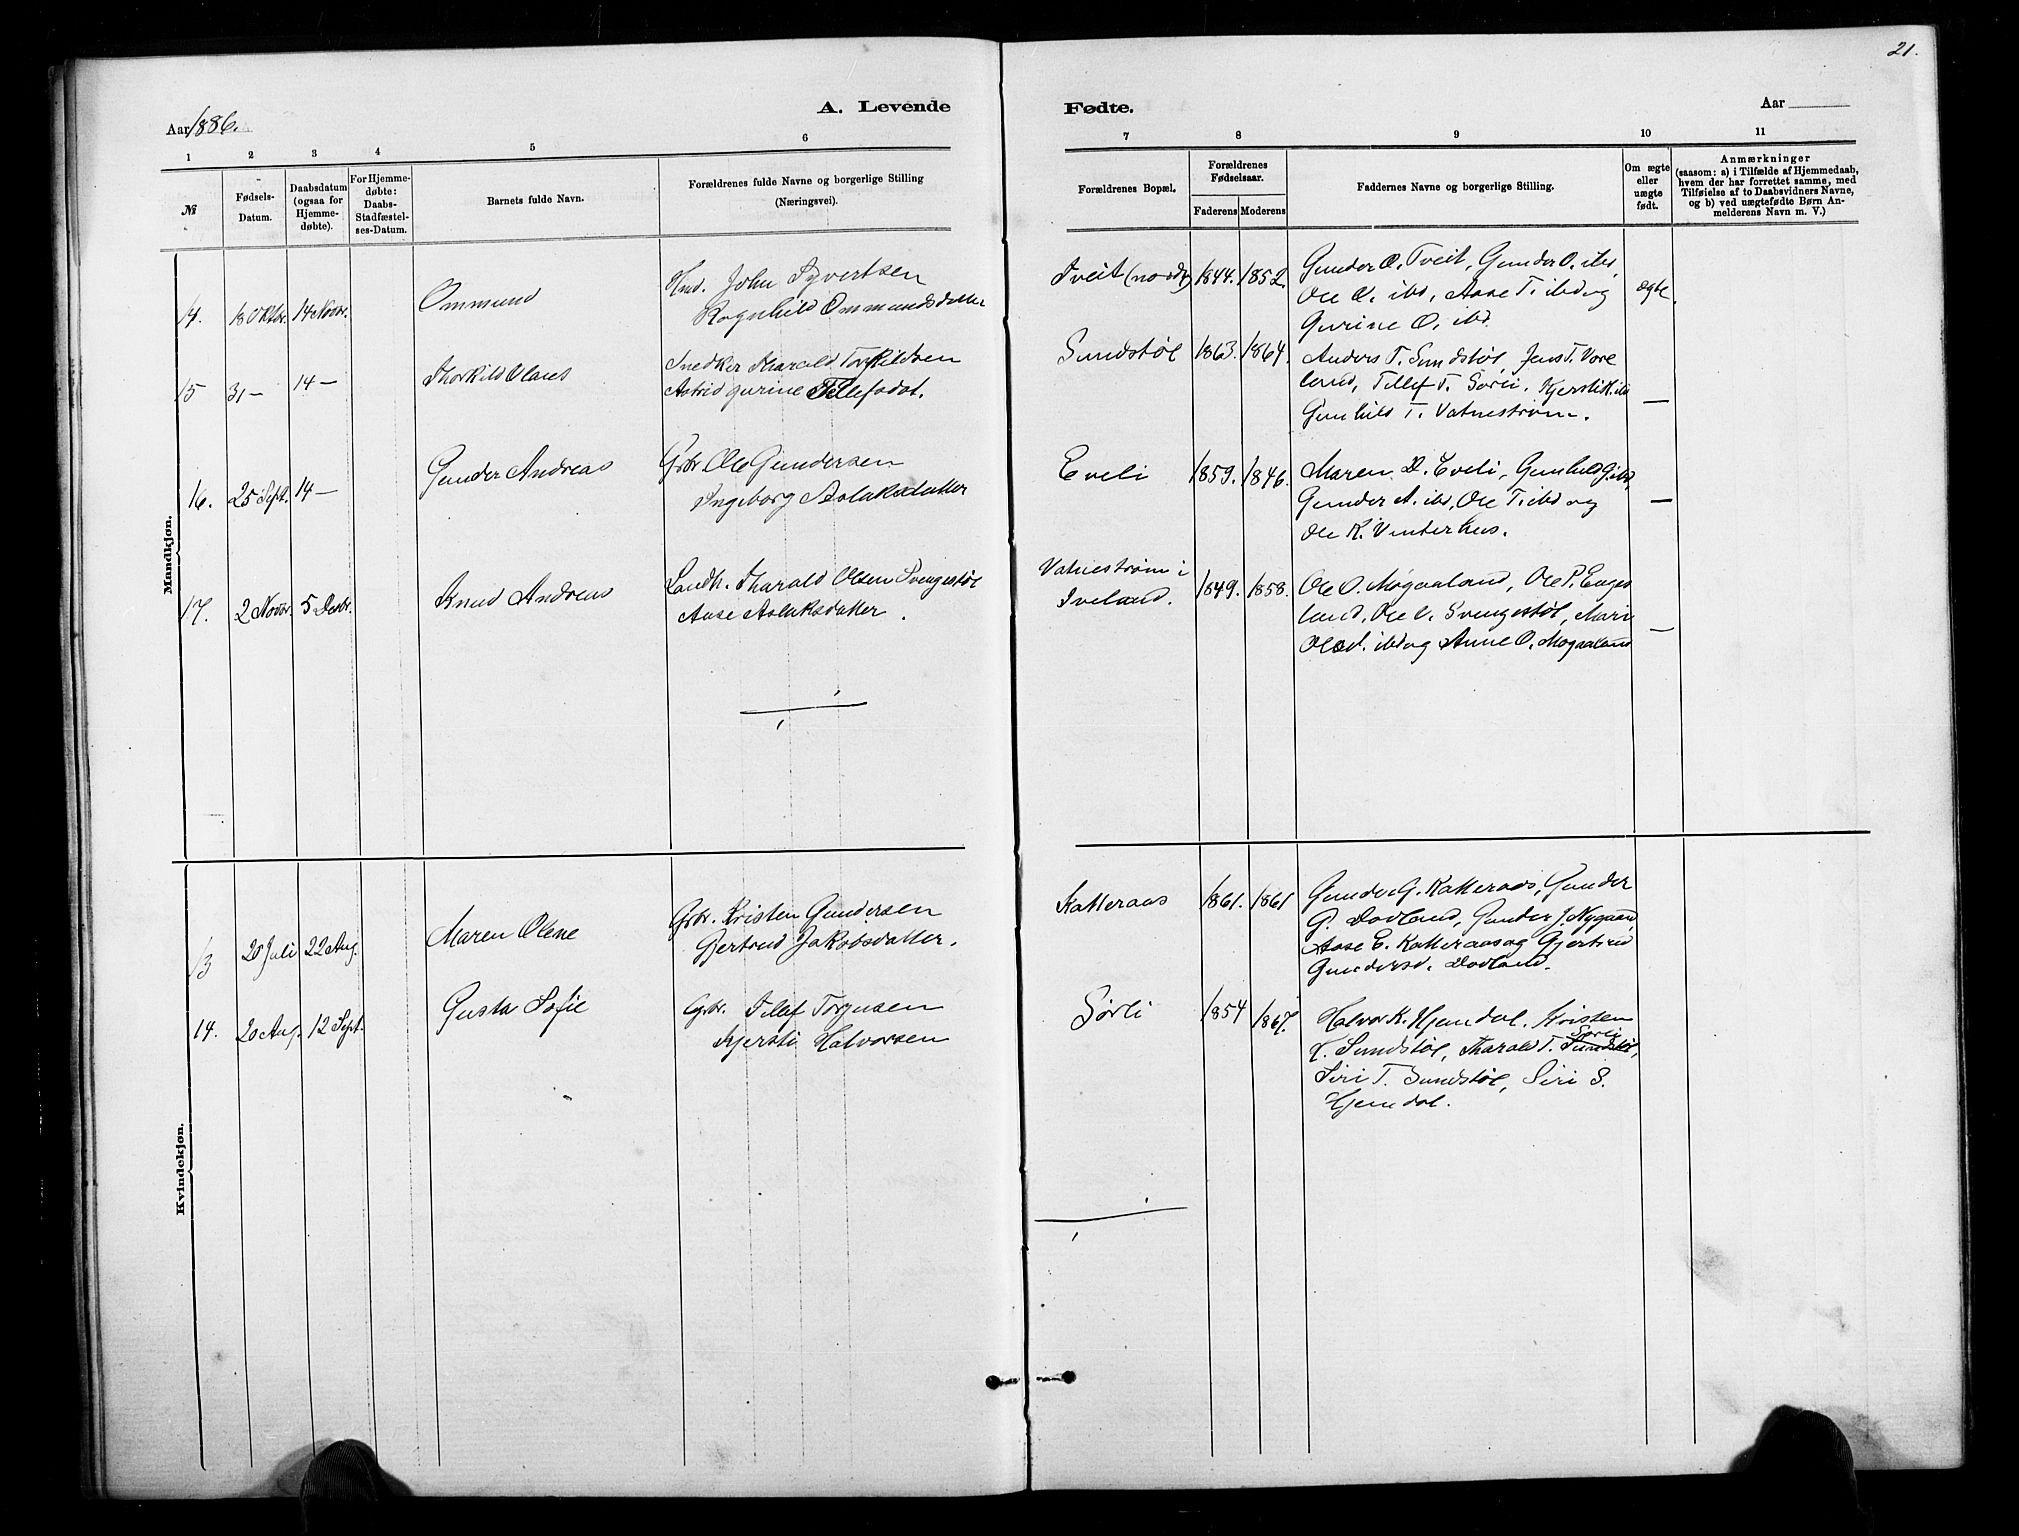 21.
A. Levende
Fødte.
Aar 1886.
Aar
1 2 3 4 5 6 7 8 9 10 11
№
Fødsels-
Datum.
Daabsdatum
(ogsaa for
Hjemme-
døbte).
For Hjemme-
døbte:
Daabs-
Stadfæstel-
ses-Datum.
Barnets fulde Navn.
Forældrenes fulde Navne og borgerlige Stilling
(Næringsvei).
Forældrenes Bopæl.
Forældrenes
Fødselsaar.
Faderens Moderens
Faddernes Navne og borgerlige Stilling.
Om ægte
eller
uægte
født.
Anmærkninger
(saasom: a) i Tilfælde af Hjemmedaab,
hvem der har forrettet samme, med
Tilføielse af to Daabsvidners Navne,
og b) ved uægtefødte Børn An-
melderens Navn m. V.)
Mandkjøn.
14. 18 Oktbr. 14 Novbr. Ommund
Hmd. John Syvertsen
Ragnhild Ommundsdatter
Tveit (nordy) 1844. 1852.
Gunder O. Tveit, Gunder O. ibd,
Ole O. ibd, Aase T. ibd og
Gurine O. ibd.
ægte.
15 31 — 14 — Thorkild Olaus
Snedker Tharald Torkildsen
Astrid Gurine Tellefsdat.
Sundstøl 1863. 1864.
Anders T. Sundstøl, Jens T. Vore
land, Tellef T. Sørli, Kjersti H. ibd
Gunhild T. Vatnestrøm.
—
16. 25 Sept. 14 — Gunder Andreas
Gbr. Ole Gundersen
Ingeborg Aslaksdatter
Eveli 1859. 1846.
Maren D. Eveli, Gunhild G. ibd,
Gunder A. ibd, Ole T. ibd og
Ole K. Vinterhus.
—
17. 2 Novbr. 5 Decbr. Knud Andreas
Landh. Tharald Olsen Svengestøl
Aase Aslaksdatter.
Vatnestrøm i
Iveland. 1849. 1858.
Ole O. Mogaaland, Ole P. Enges
land, Ole O. Svengestøl, Mari
Olsd. ibd og Anne O. Mogaaland
—
Kvindekjøn.
13 20 Juli 22 Aug. Maren Olene
Gbr. Kristen Gundersen
Gjertrud Jakobsdatter.
Katteraas 1861. 1861
Gunder G. Katteraas, Gunder
G. Dovland, Gunder J. Nygaard,
Aase E. Katteraas og Gjertrud
Gundersd. Dovland.
14. 20 Aug. 12 Sept. Gusta Sofie
Gbr. Tellef Torjusen
Kjersti Halvorsen
Sørli 1854 1867.
Halvor K. Hjemdal. Kristen
H. Sundstøl, Tharald T. Sundstøl, Sørli
Siri T. Sundstøl, Siri S.
Hjemdal.